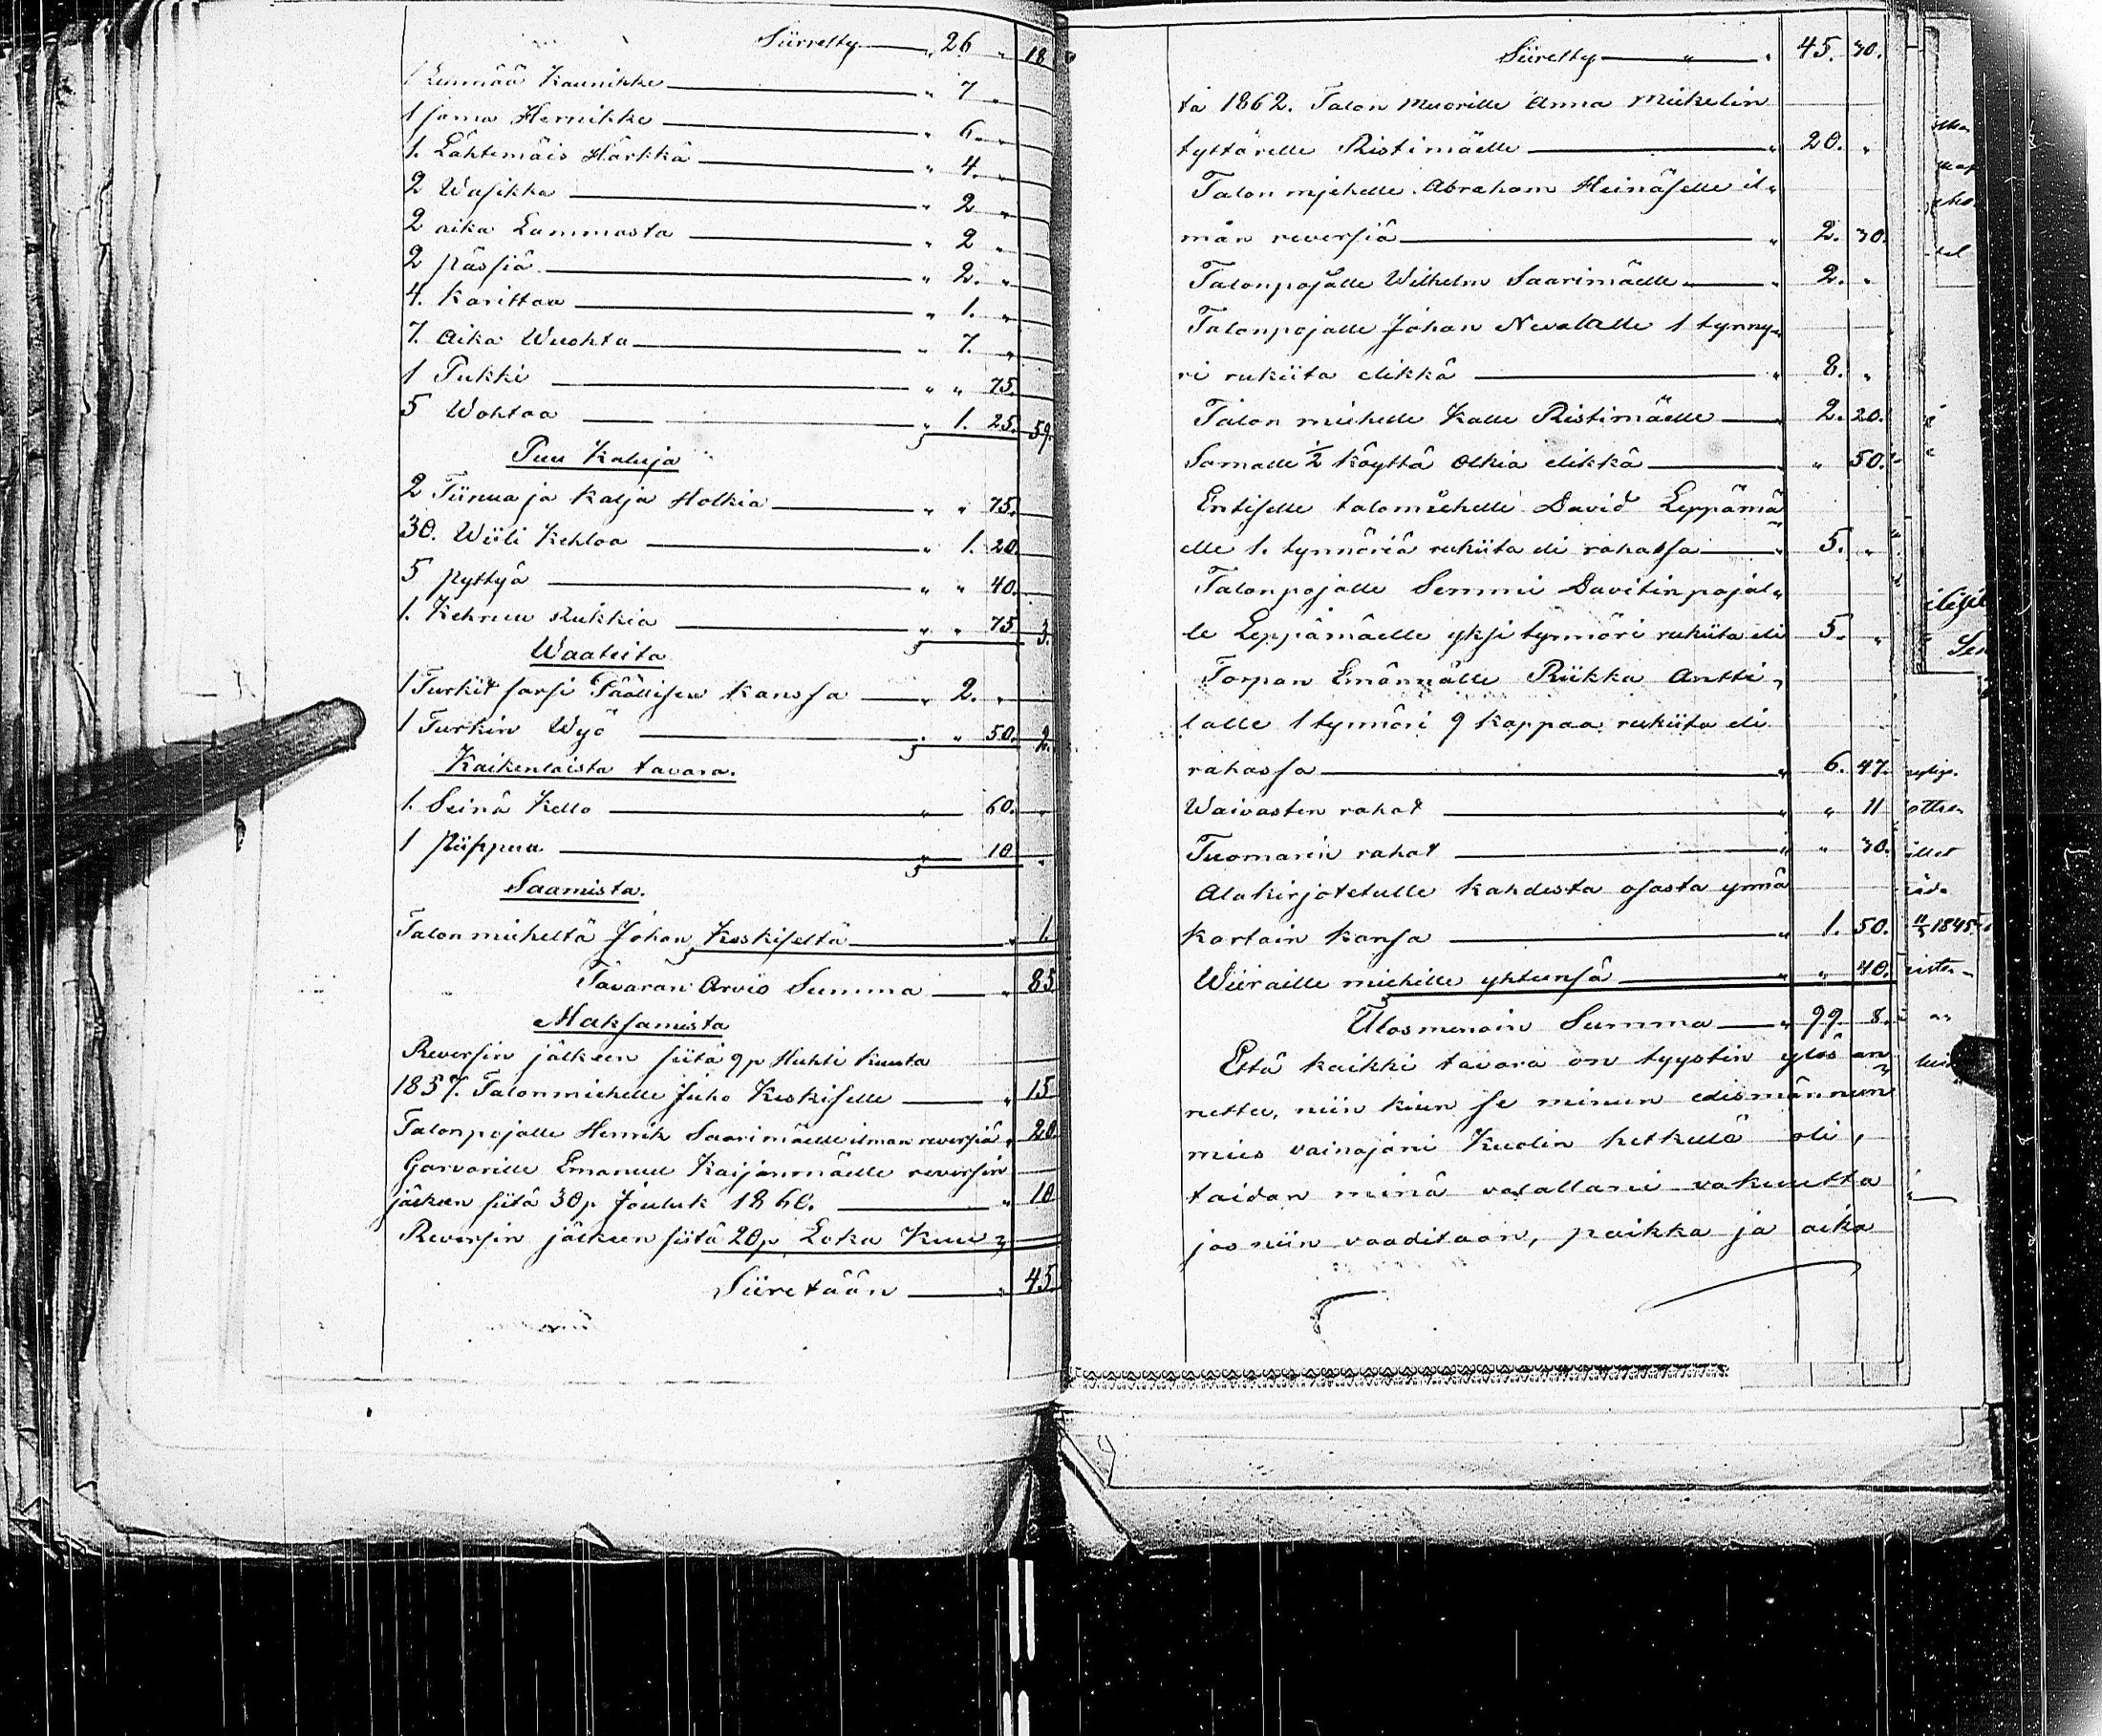 Siirretty — „ 26 „ 18
1 Lemmää Kaunikke — „ 7 „
1 sama Hernikke — „ 6. „
1. Lähtemäis Härkkä — „ 4. „
2 Wasikka — „ 2 „
2 aika Lammasta — „ 2 „
2 pässiä — „ 2. „
4. Karittaa — „ 1. „
7. Aika Wuohta — „ 7. „
1 Pukki — „ „ 75.
5 Wohlaa — „ 1. 25. 59.
Puu Kaluja
2 Tiinua ja Kalja Holkia — „ „ 75.
30. Wiili Kehloa — „ 1. 20.
5 pyttyä — „ „ 40.
1. Kehruu Rukkia — „ „ 75 3.
Waateita
1 Turkit sarsi Päällisen kanssa — „ 2. „
1 Turkin Wyö — „ „ 50. 2.
Kaikenlaista tavara.
1. Seinä Kello — „ 60. „
1 Piippua — „ 10 „
Saamista.
Talon mieheltä Johan Keskiseltä — „ 1.
Tavaran Arvio Summa — „ 85
Maksamista
Reversin jälkeen siitä 9 p Huhti kuuta
1857. Talonmiehelle Juho Keskiselle — „ 15
Talonpojalle Henrik Saarimäelle ilman reversiä „ 20.
Garvarille Emanuel Kaijanmäelle reversin
jälkeen siitä 30 p Jouluk 1860. — „ 10
Reversin jälkeen siitä 20 p Loka Kuu
Siiretään — „ 45
Siiretty — „ „ 45. 30.
ta 1862. Talon muorille Anna Miikelin
tyttärelle Ristimäelle — „ 20. „
Talon mjehelle Abraham Heinäselle il„
man reversiä — „ 2. 30.
Talonpojalle Wilhelm Saarimäelle — „ 2. „
Talonpojalle Johan Nevalalle 1 tynny„
ri rukiita elikkä — „ 8. „
Talon miehelle Kalle Ristimäelle — „ 2. 20.
Samalle ½ köyttä olkia elikkä — „ 50.
Entiselle talomiehelle David Leppämä
elle 1. tynnöriä rukiita eli rahassa — „ 5. „
Talonpojalle Semmi Davitin pojal„
le Leppämäelle yksi tynnöri rukiita eli 5. „
Torpan Emännälle Riikka Antti„
lalle 1 tynnöri 9 kappaa rukiita eli
rahassa — „ 6. 47.
Waivasten rahat — „ „ 11
Tuomarin rahat — „ „ 30.
Alakirjotetulle kahdesta osasta ynnä
kartain kansa — „ 1. 50.
Wieraille miehille yhteensä — „ „ 40.
Ulosmenoin Summa — „ 99. 8.
Että kaikki tavara on tyystin ylös an
nettu, niin kuin se minun edesmännen
mies vainajani Kuolin hetkellä oli,
taidan minä valallani vakuutta
jos niin vaaditaan, paikka ja aika
1845